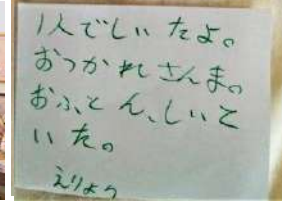 1人でしいたよ。
おつかれさんま。
おふとん、しいと
いた。
えりょう